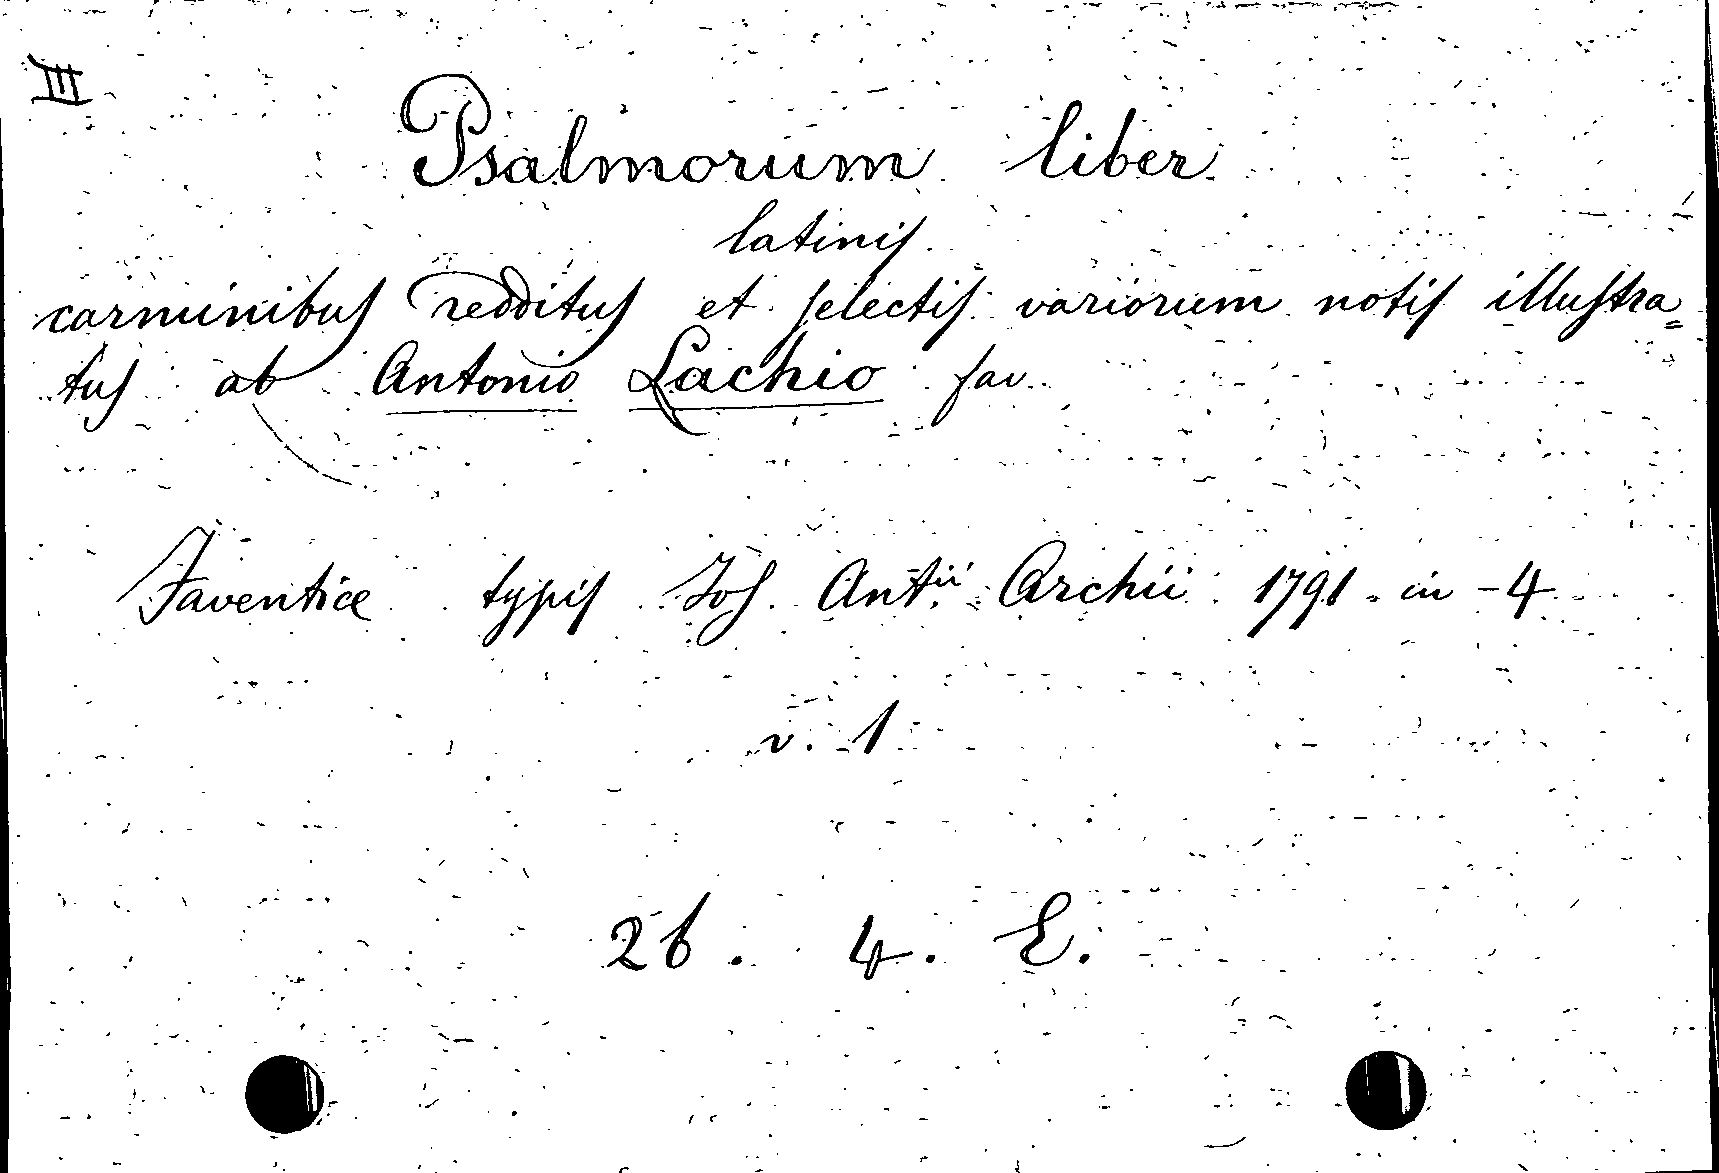 III
Psalmorum liber
latinis
carminibus redditus et selectis variorum notis illustra=
tus ab Antonio Lachio fav.
Faventiae typis Jos. Ant.ii Archii 1791. in-4
v. 1
26. 4. E.